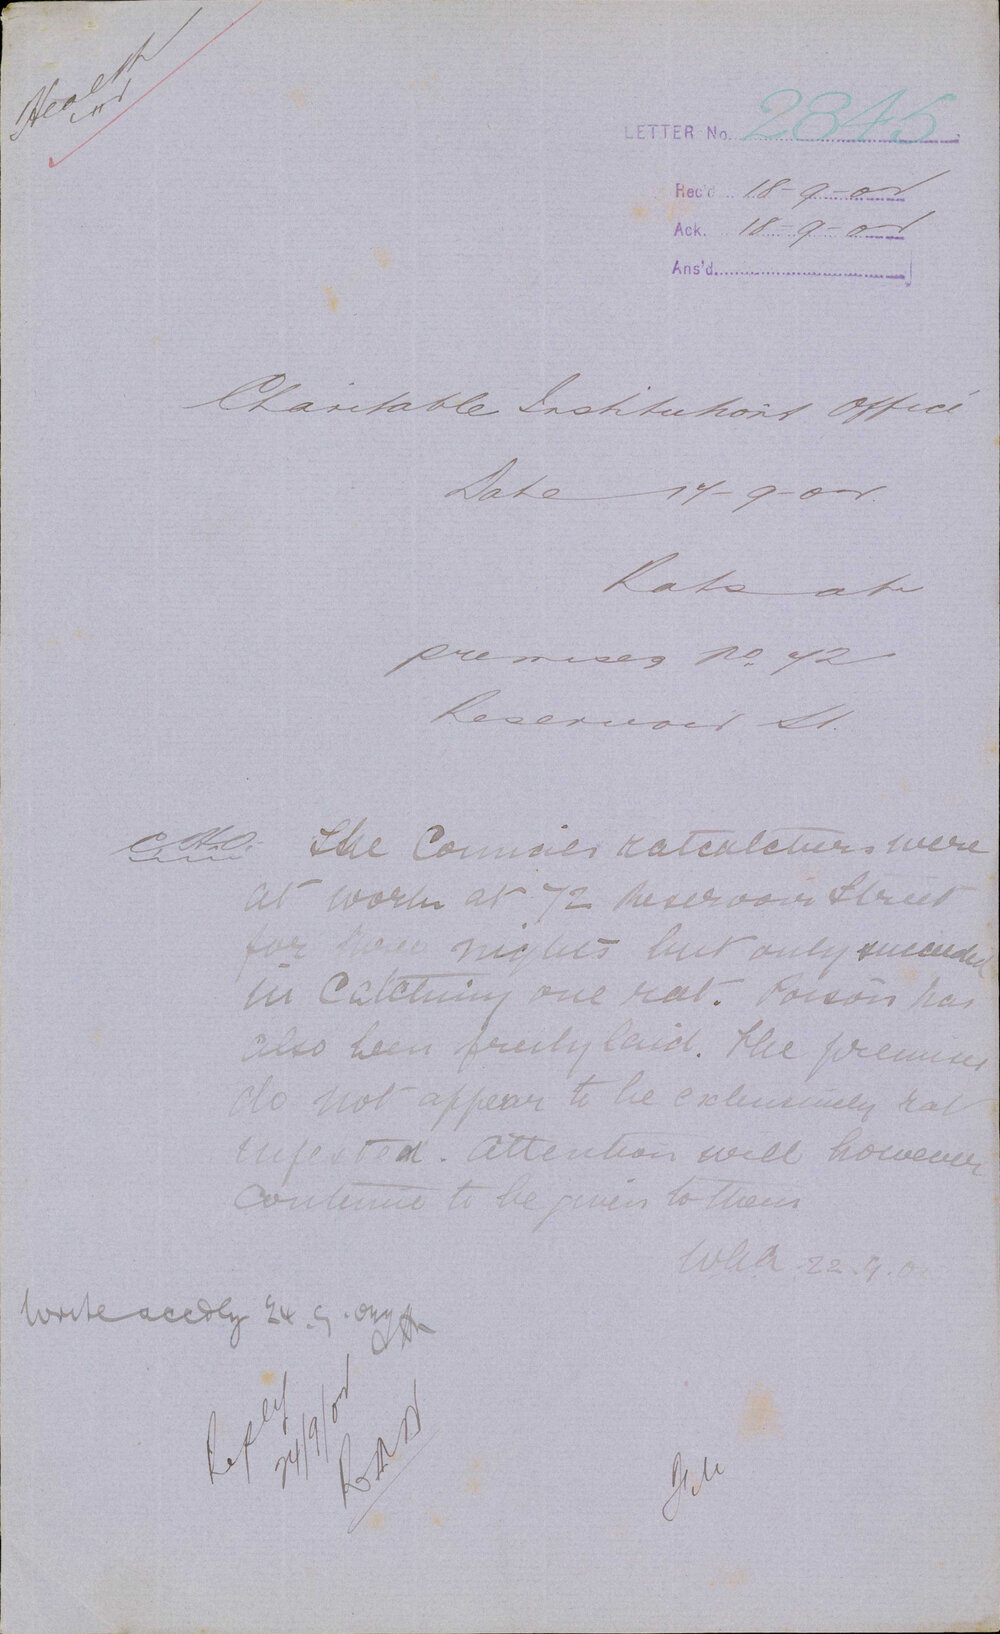 Health
LETTER No. 2845
Rec'd. 18-9-02
Ack. 18-9-02
Ans'd.
Charitable Institutions Office
Date 17-9-02.
Rats at
premises No. 72
Reservoir St.
C.H.O. The Councils ratcatchers were
at work at 72 Reservoir Street
for nights but only succeeded
in Catching one rat. Poison has
also been freely laid. The premises
do not appear to be extensively rat
infested. Attention will however
continue to be given to them
22.9.0
Write accdly 24.9.02
Reply
24/9/02